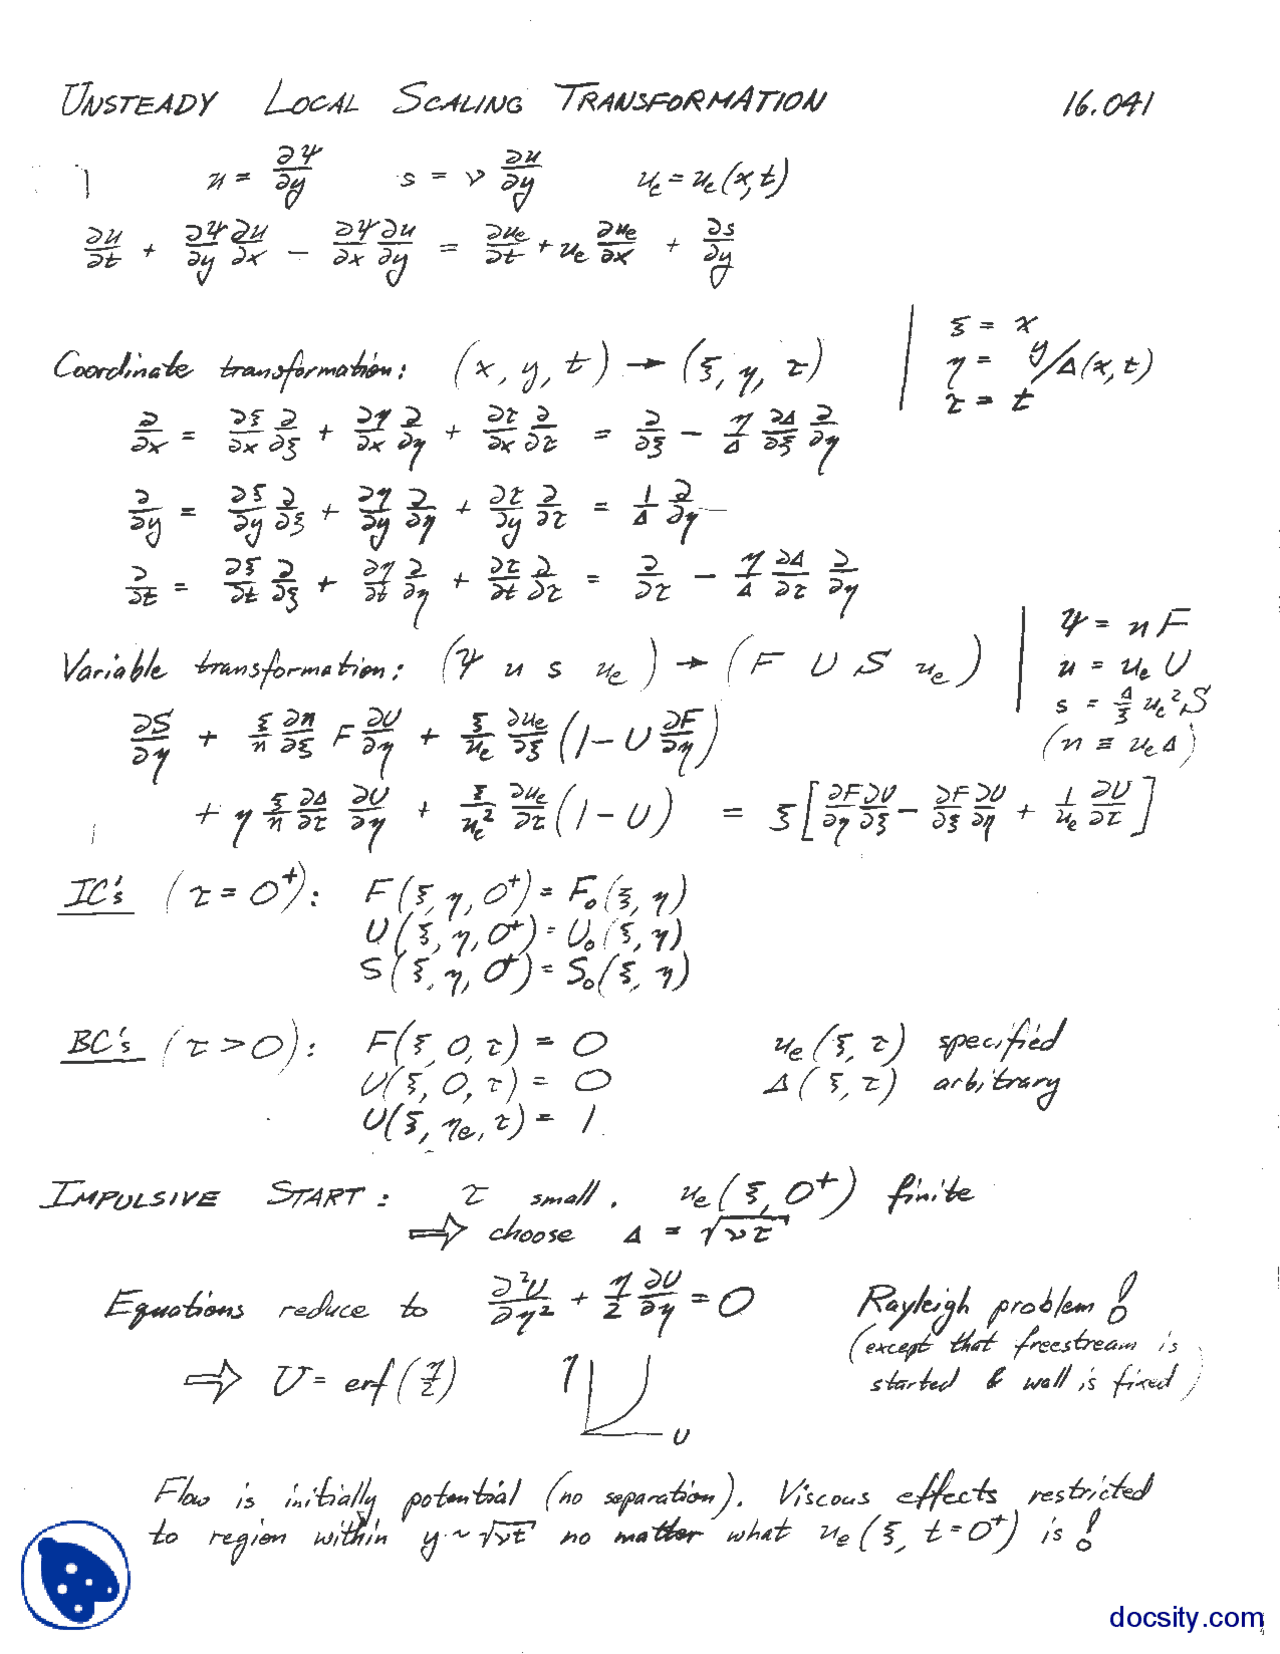 UNSTEADY LOCAL SCALING TRANSFORMATION 16.041
u = ∂Ψ/∂y s = ν ∂u/∂y u_e = u_e(x,t)
∂u/∂t + ∂Ψ/∂y ∂u/∂x − ∂Ψ/∂x ∂u/∂y = ∂u_e/∂t + u_e ∂u_e/∂x + ∂s/∂y
Coordinate transformation: (x, y, t) → (ξ, η, τ) | ξ = x
η = y/Δ(x,t)
τ = t
∂/∂x = ∂ξ/∂x ∂/∂ξ + ∂η/∂x ∂/∂η + ∂τ/∂x ∂/∂τ = ∂/∂ξ − η/Δ ∂Δ/∂ξ ∂/∂η
∂/∂y = ∂ξ/∂y ∂/∂ξ + ∂η/∂y ∂/∂η + ∂τ/∂y ∂/∂τ = 1/Δ ∂/∂η
∂/∂t = ∂ξ/∂t ∂/∂ξ + ∂η/∂t ∂/∂η + ∂τ/∂t ∂/∂τ = ∂/∂τ − η/Δ ∂Δ/∂τ ∂/∂η
Variable transformation: (Ψ u s u_e) → (F U S u_e) | Ψ = n F
u = u_e U
s = Δ/ξ u_e² S
(n ≡ u_e Δ)
∂S/∂η + ξ/n ∂n/∂ξ F ∂U/∂η + ξ/u_e ∂u_e/∂ξ (1 − U ∂F/∂η)
+ η ξ/n ∂Δ/∂τ ∂U/∂η + ξ/u_e² ∂u_e/∂τ (1 − U) = ξ [∂F/∂η ∂U/∂ξ − ∂F/∂ξ ∂U/∂η + 1/u_e ∂U/∂τ]
IC's (τ = 0⁺): F(ξ, η, 0⁺) = F₀(ξ, η)
U(ξ, η, 0⁺) = U₀(ξ, η)
S(ξ, η, 0⁺) = S₀(ξ, η)
BC's (τ > 0): F(ξ, 0, τ) = 0 u_e(ξ, τ) specified
U(ξ, 0, τ) = 0 Δ(ξ, τ) arbitrary
U(ξ, η_e, τ) = 1
IMPULSIVE START: τ small. u_e(ξ, 0⁺) finite
⇒ choose Δ = √ντ
Equations reduce to ∂²U/∂η² + η/2 ∂U/∂η = 0 Rayleigh problem!
(except that freestream is
started & wall is fixed)
⇒ U = erf(η/2) η
U
Flow is initially potential (no separation). Viscous effects restricted
to region within y ~ √νt no matter what u_e(ξ, t=0⁺) is!
docsity.com